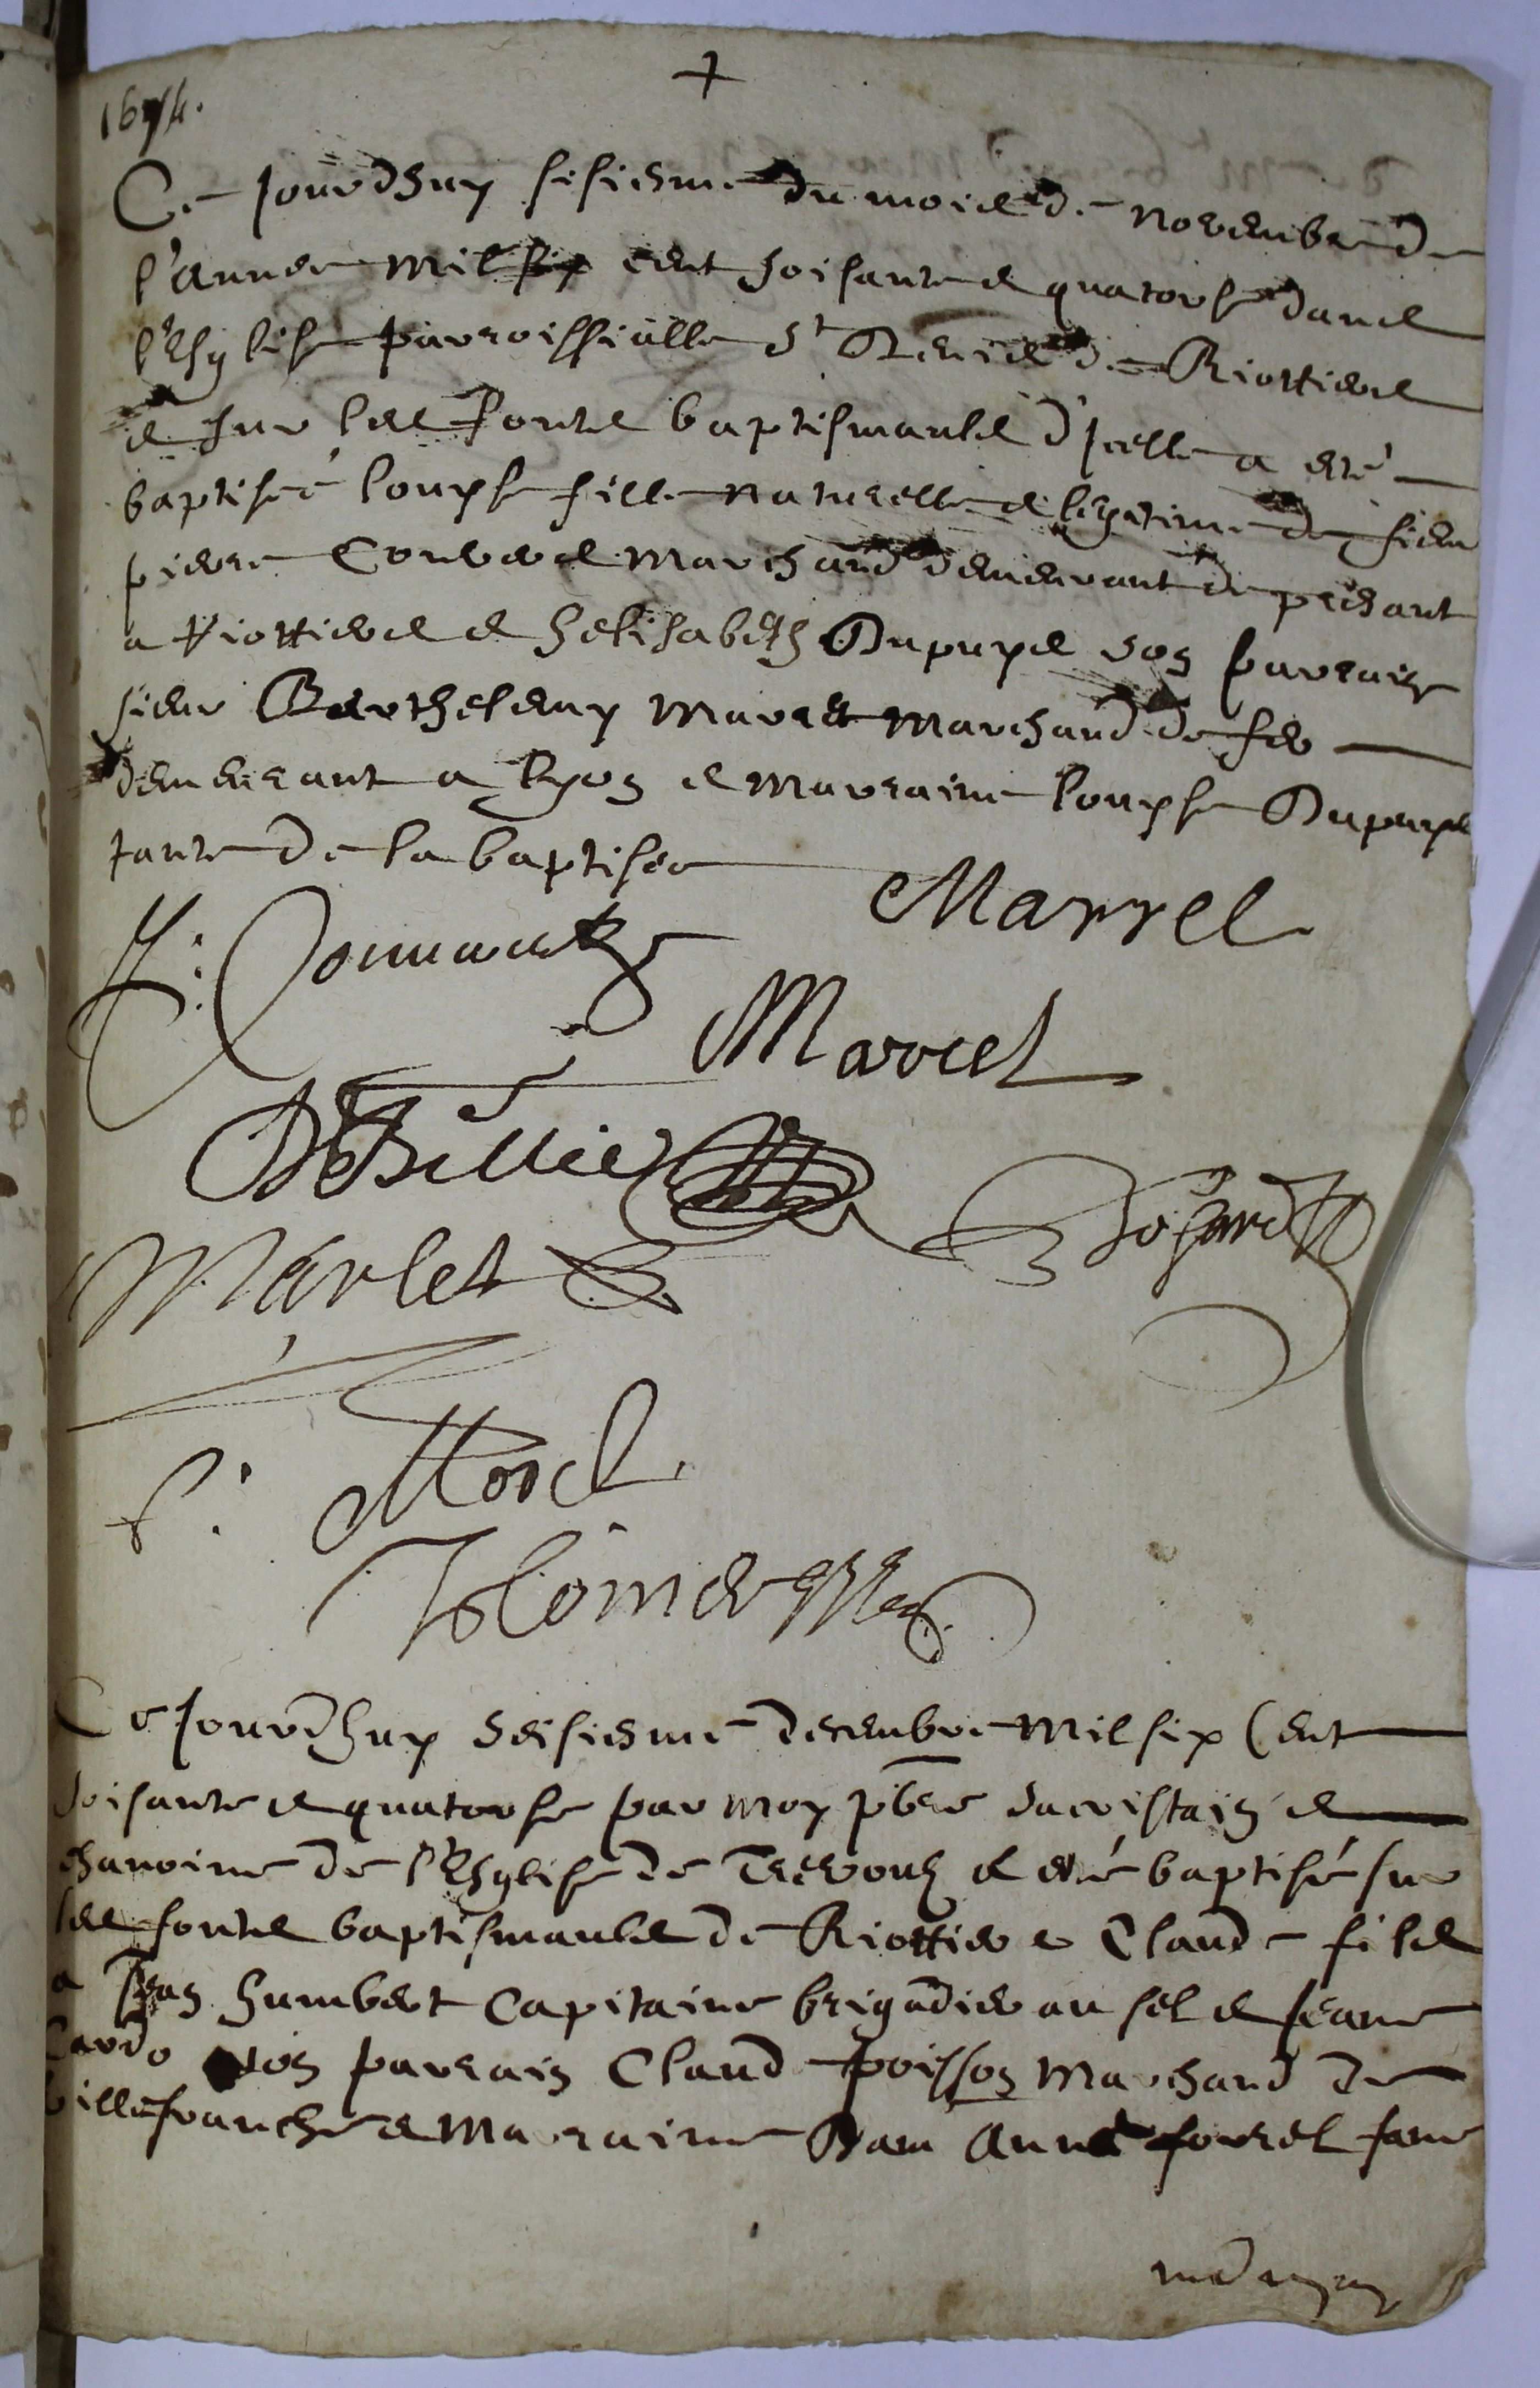 +
1674.
Ce jourdhuy sisiesme du mois de novembre de
l'annee mil six cent soisante & quatorse dans
l'Esglise parroissialle St Denis de Riottiers
& sur les fonts baptismaubs d'icelle a eté
baptiséé louyse fille naturelle & legitime de sieur
pierre marchand demeurant de presant
a Riottiers & helisabeth Dupuys son parrain
sieur Barthelemy marchand de fer
demeurant a lyon & marraine louyse Dupuys
tante de la baptisée
Marrel
Marcel
Marlet
P. Morel
Ce jourdhuy seisiesme decembre mil six Cent
soisante & quatorse par moy pbre sacristain &
chanoine de l'Esglise de Trevoux a eté baptisé sur
les fonts baptismaubs de Riottier Claude fils
a Jean humbert Capitaine brigadier au sel & Jeane
son parrain Claude poisson marchand de
villefranche & marraine Dam Anne fame